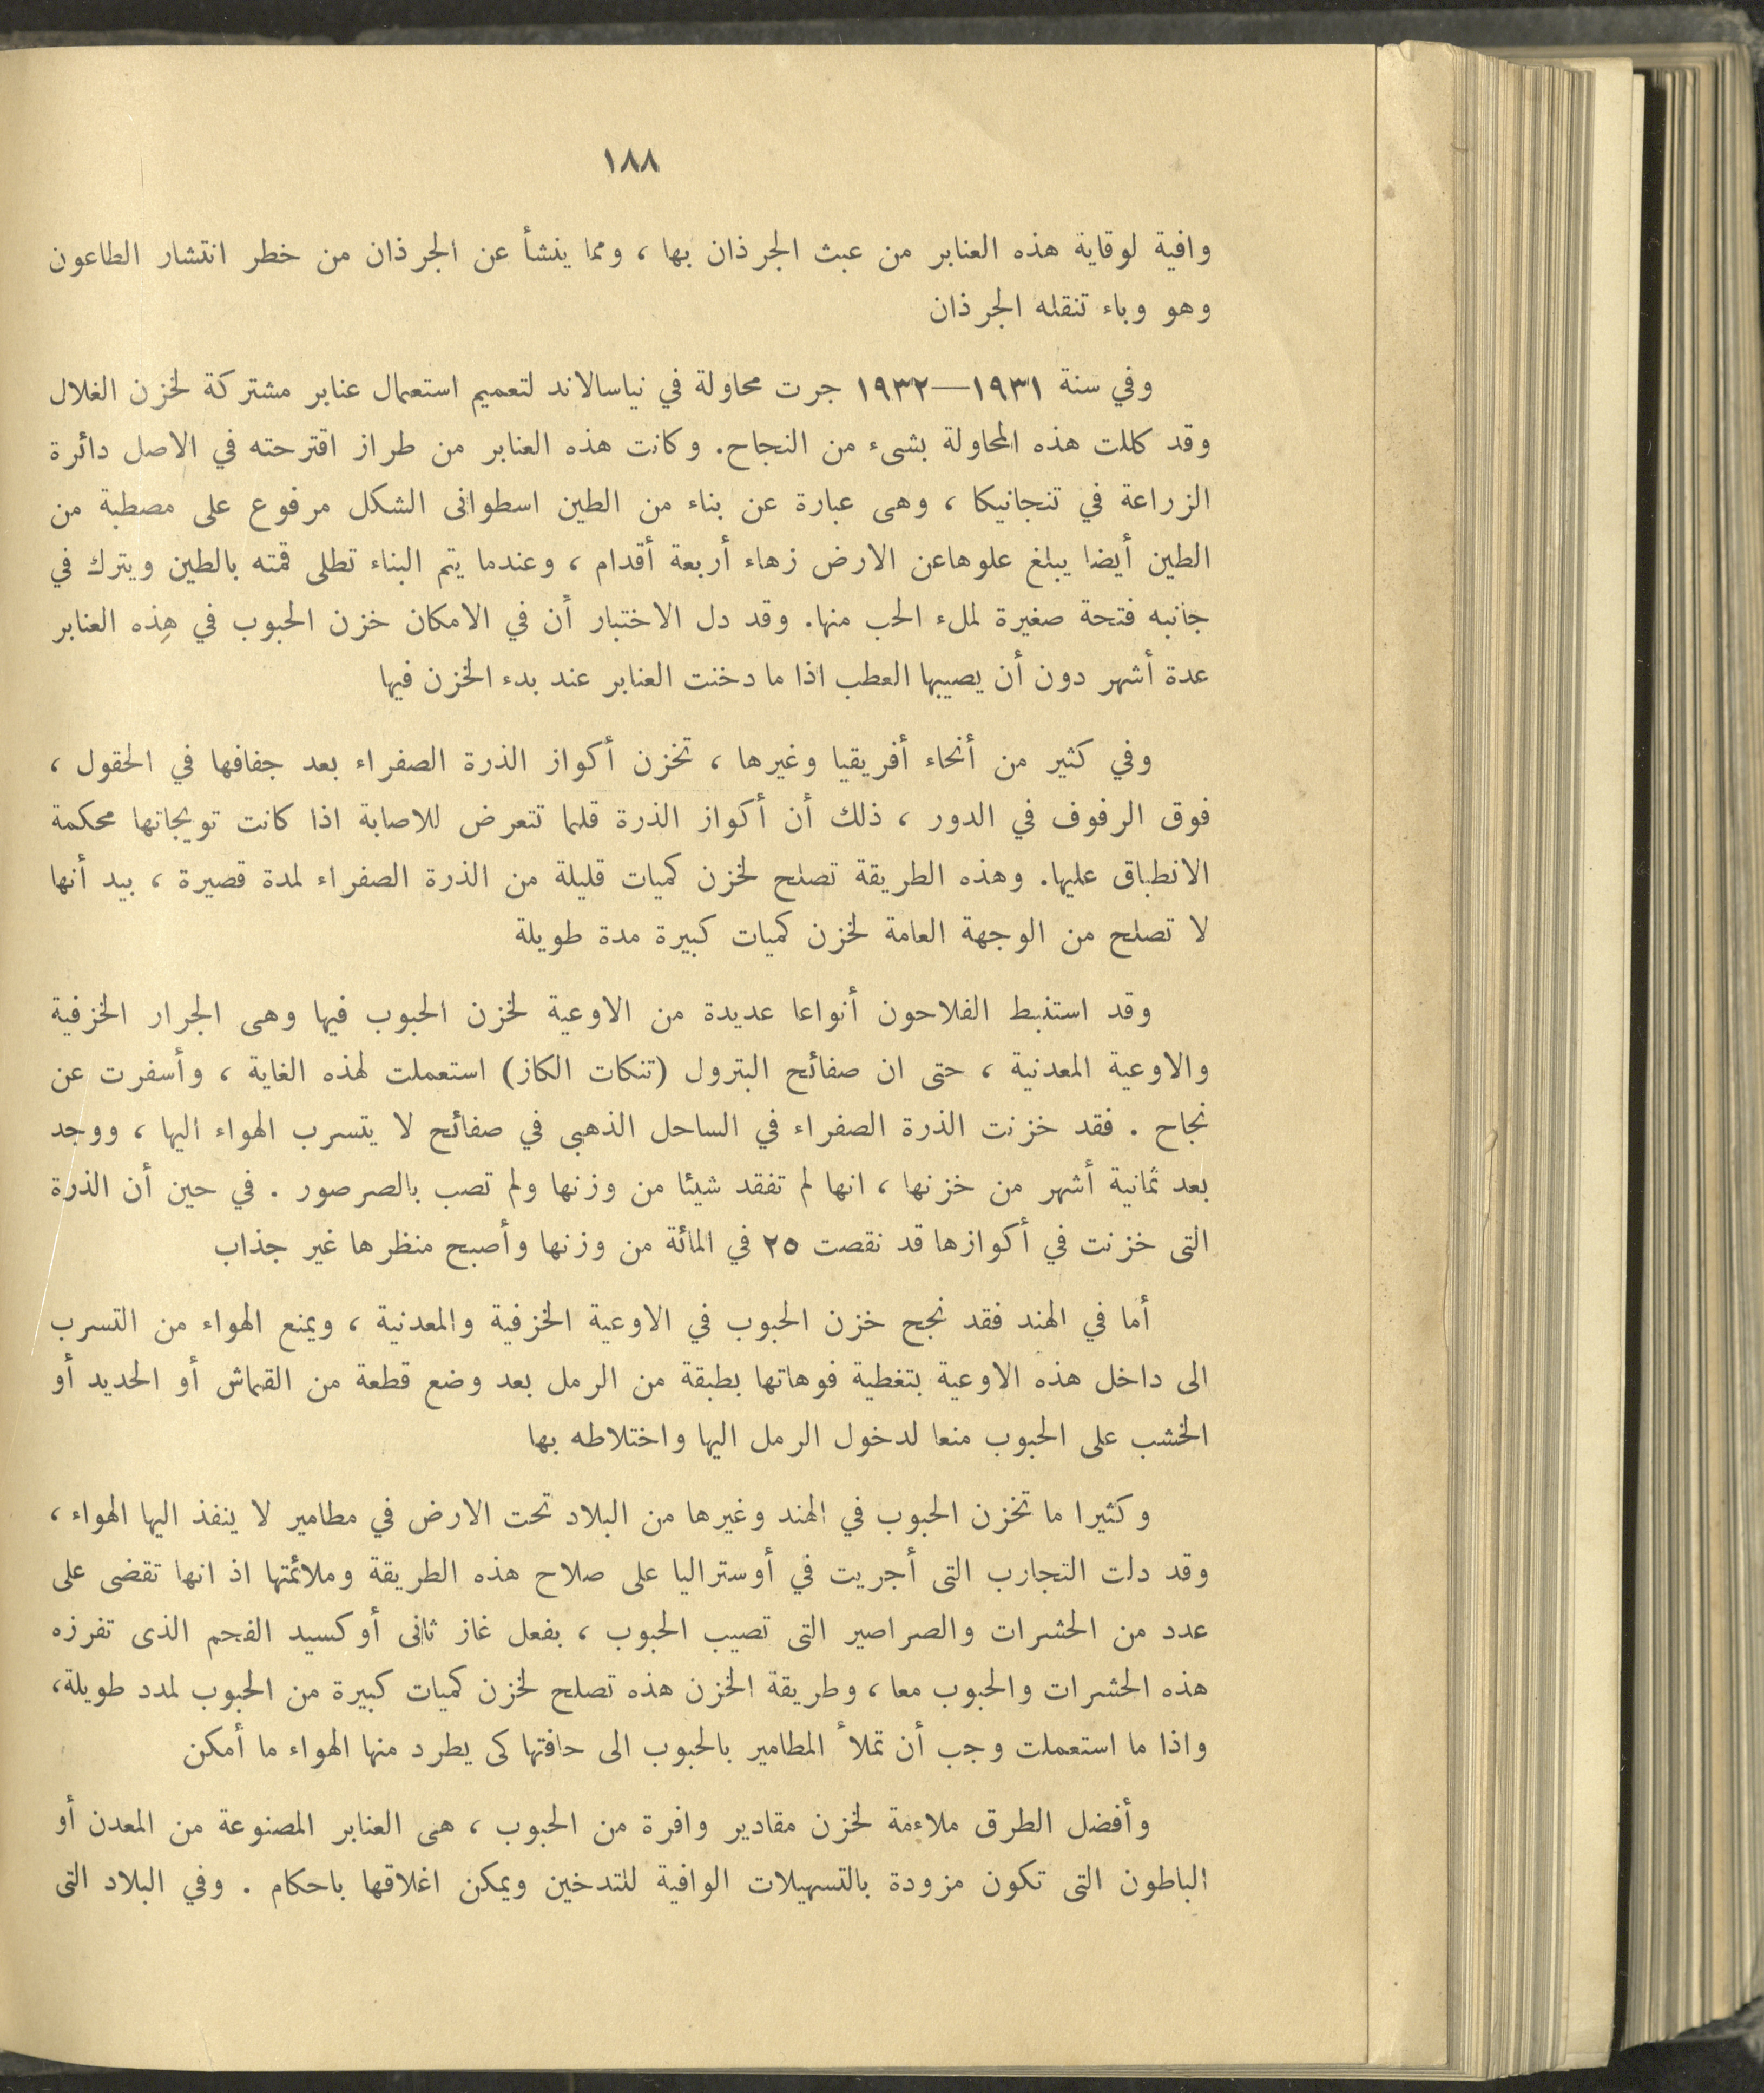 ١٨٨
وافية لوقاية هذه العنابر من عبث الجرذان بها ، ومما ينشأ عن الجرذان من خطر انتشار الطاعون
وهو وباء تنقله الجرذان
وفي سنة ١٩٣١—١٩٣٢ جرت محاولة في نياسالاند لتعميم استعمال عنابر مشتركة لخزن الغلال
وقد كللت هذه المحاولة بشىء من النجاح. وكانت هذه العنابر من طراز اقترحته في الاصل دائرة
الزراعة في تنجانيكا ، وهى عبارة عن بناء من الطين اسطوانى الشكل مرفوع على مصطبة من
الطين أيضا يبلغ علوهاعن الارض زهاء أربعة أقدام ، وعندما يتم البناء تطلى قمته بالطين ويترك في
جانبه فتحة صغيرة لملء الحب منها. وقد دل الاختبار أن في الامكان خزن الحبوب في هذه العنابر
عدة أشهر دون أن يصيبها العطب اذا ما دخنت العنابر عند بدء الخزن فيها
وفي كثير من أنحاء أفريقيا وغيرها ، تخزن أكواز الذرة الصفراء بعد جفافها في الحقول ،
فوق الرفوف في الدور ، ذلك أن أكواز الذرة قلما تتعرض للاصابة اذا كانت تويجاتها محكمة
الانطباق عليها. وهذه الطريقة تصلح لخزن كميات قليلة من الذرة الصفراء لمدة قصيرة ، بيد أنها
لا تصلح من الوجهة العامة لخزن كميات كبيرة مدة طويلة
وقد استنبط الفلاحون أنواعا عديدة من الاوعية لخزن الحبوب فيها وهى الجرار الخزفية
والاوعية المعدنية ، حتى ان صفائح البترول (تنكات الكاز) استعملت لهذه الغاية ، وأسفرت عن
نجاح . فقد خزنت الذرة الصفراء في الساحل الذهبى في صفائح لا يتسرب الهواء اليها ، ووجد
بعد ثمانية أشهر من خزنها ، انها لم تفقد شيئا من وزنها ولم تصب بالصرصور . في حين أن الذرة
التى خزنت في أكوازها قد نقصت ٢٥ في المائة من وزنها وأصبح منظرها غير جذاب
أما في الهند فقد نجح خزن الحبوب في الاوعية الخزفية والمعدنية ، ويمنع الهواء من التسرب
الى داخل هذه الاوعية بتغطية فوهاتها بطبقة من الرمل بعد وضع قطعة من القماش أو الحديد أو
الخشب على الحبوب منعا لدخول الرمل اليها واختلاطه بها
وكثيرا ما تخزن الحبوب في الهند وغيرها من البلاد تحت الارض في مطامير لا ينفذ اليها الهواء ،
وقد دلت التجارب التى أجريت في أوستراليا على صلاح هذه الطريقة وملائمتها اذ انها تقضى على
عدد من الحشرات والصراصير التى تصيب الحبوب ، بفعل غاز ثانى أوكسيد الفحم الذى تفرزه
هذه الحشرات والحبوب معا ، وطريقة الخزن هذه تصلح لخزن كميات كبيرة من الحبوب لمدد طويلة،
واذا ما استعملت وجب أن تملأ المطامير بالحبوب الى حافتها كى يطرد منها الهواء ما أمكن
وأفضل الطرق ملاءمة لخزن مقادير وافرة من الحبوب ، هى العنابر المصنوعة من المعدن أو
الباطون التى تكون مزودة بالتسهيلات الوافية للتدخين ويمكن اغلاقها باحكام . وفي البلاد التى